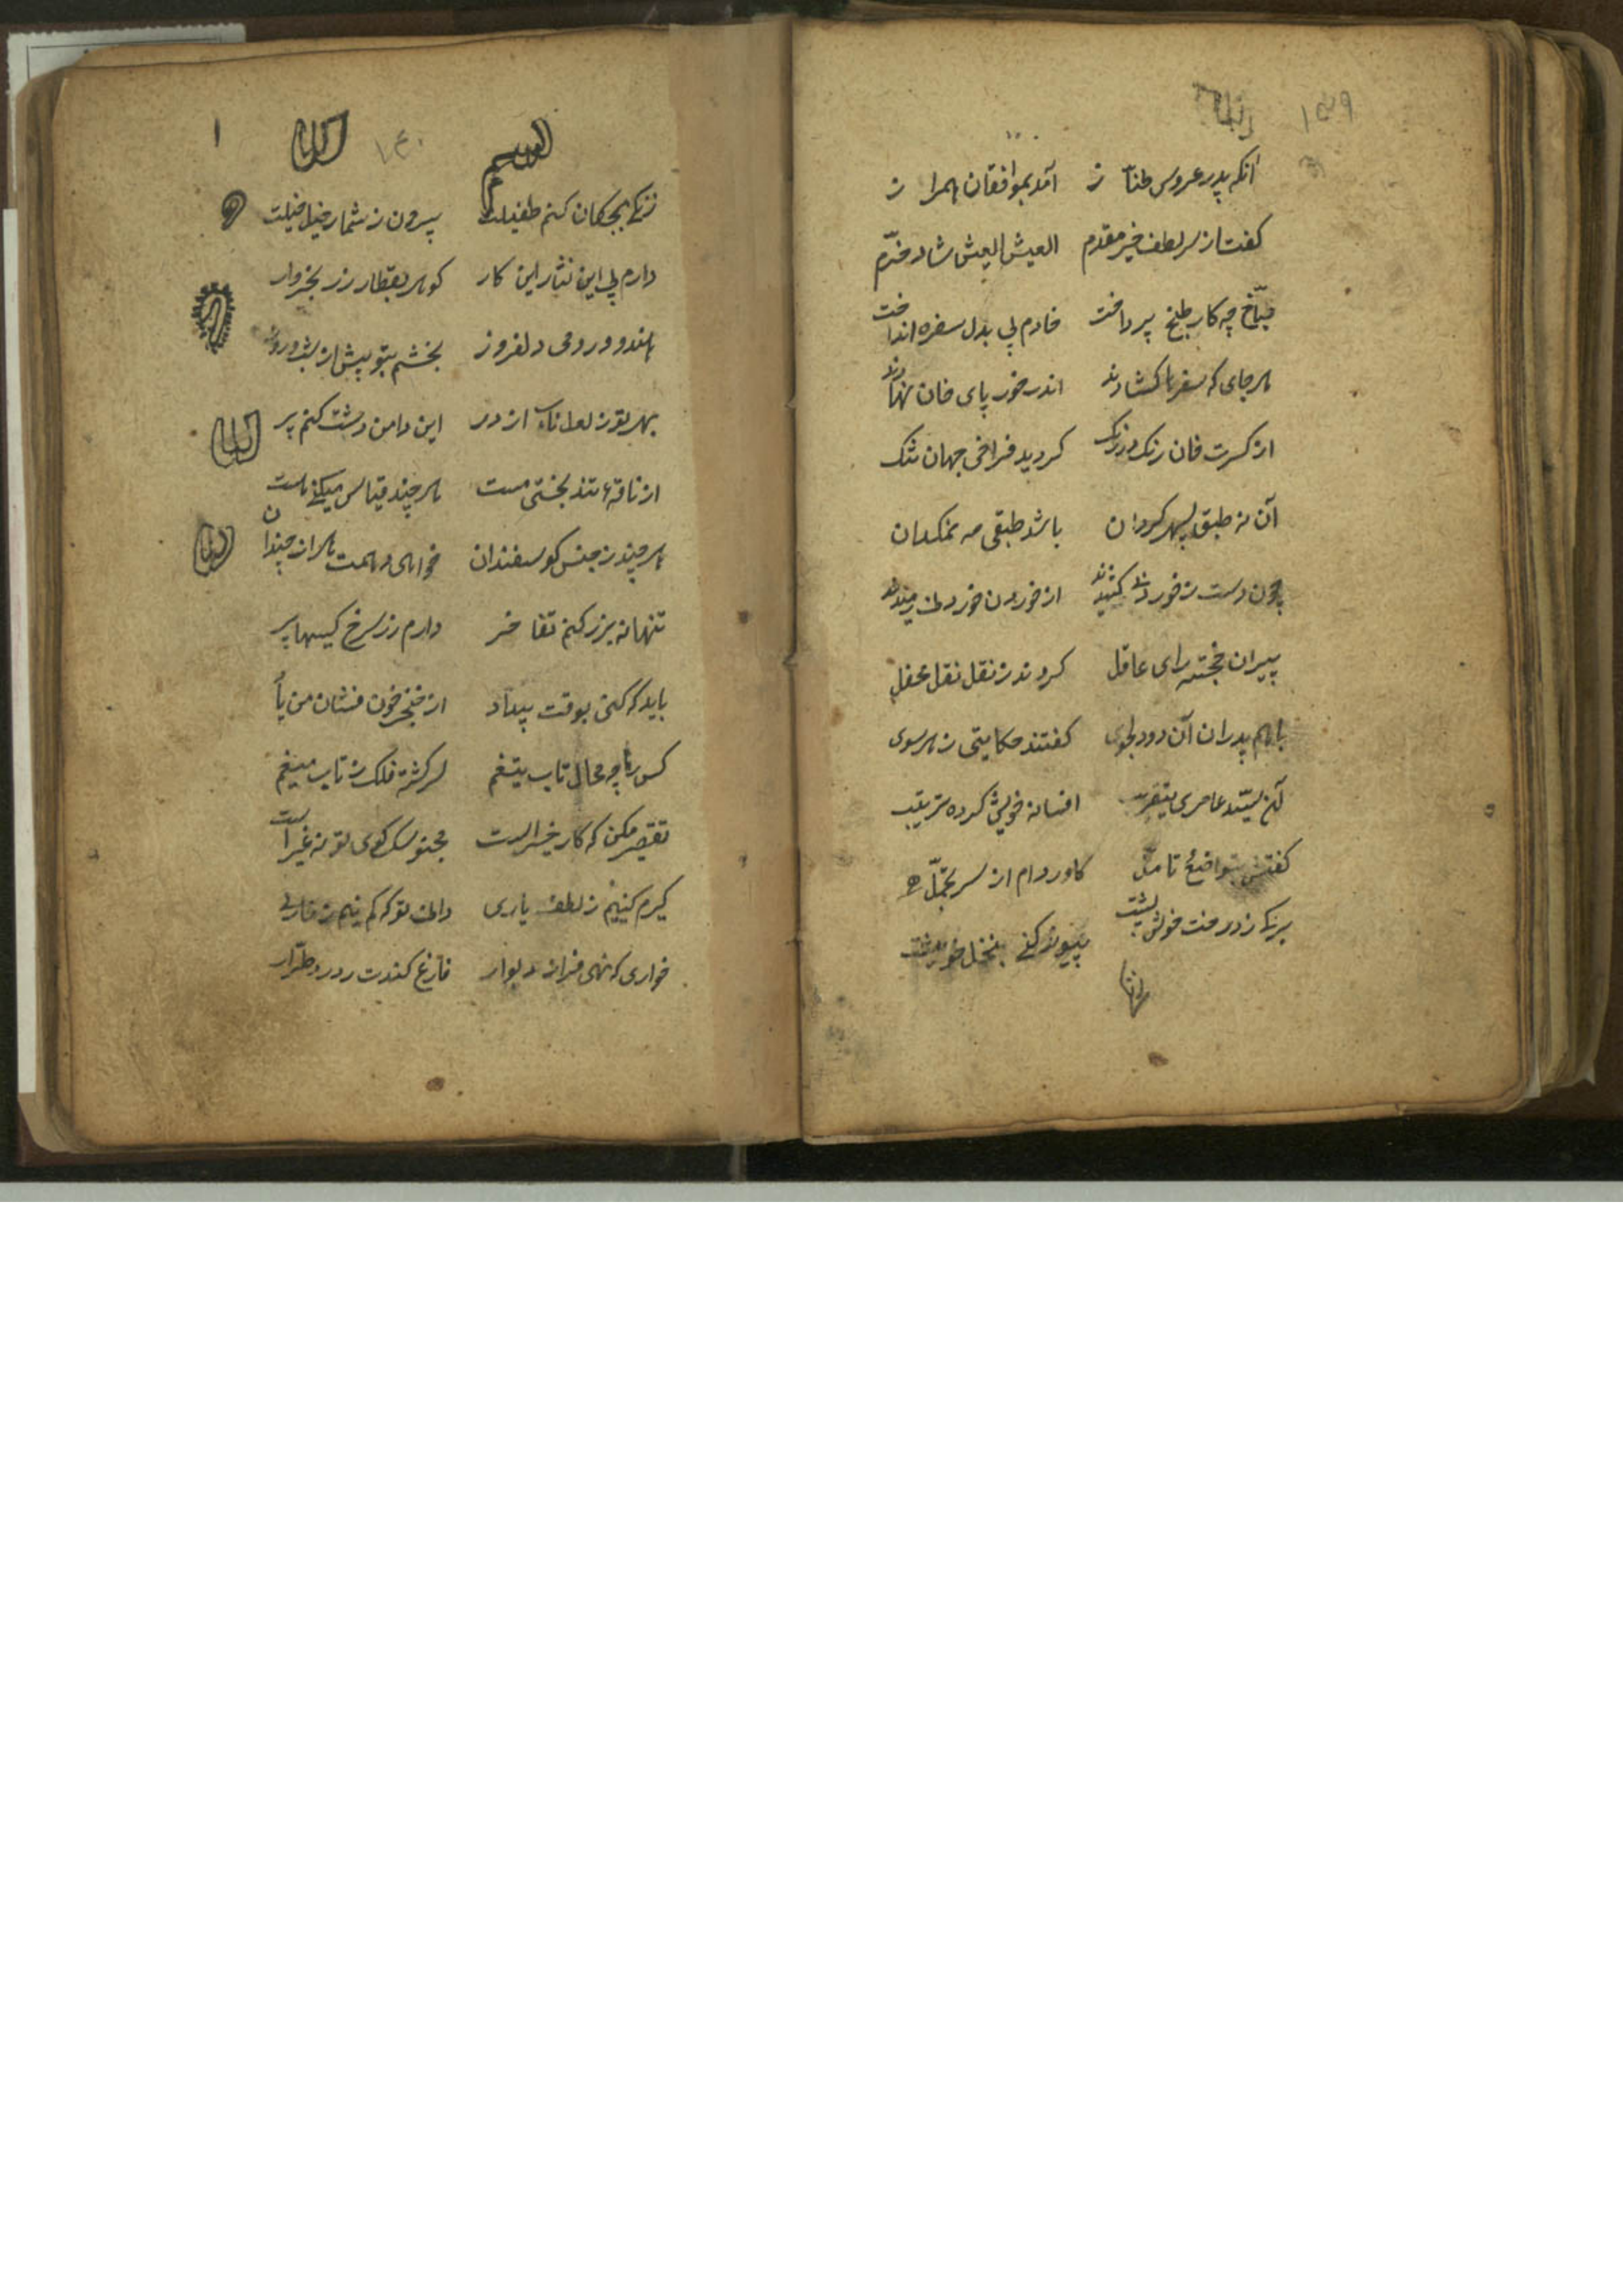 ۱۵۹
آنکه پدر عروس طناز آمد بموافقان همراز
کفت از سر لطف خیر مقدم العیش العیش شاد و خرّم
طبّاخ چه کار طبخ پرداخت خادم پی بذل سفره انداخت
هر جای که سفرها کشادند اندر خور پای خان نهادند
از کسرت خان رنک در رنک کردید فراخی جهان تنک
آن نه طبق سپهر کردان باشد طبقی مه نمکدان
چون دست ز خوردنی کشیدند از خوردن خوردنی رمیدند
پیران خجسته رای عاقل کردند ز نقل نقل محفل
باهم پدران آن دو دلجوی کفتند حکایتی ز هر سوی
آن سیّد عامری بتقریب افسانه خویش کرده ترتیب
کفتش بتواضع تامّل کاوردم از سر تجمّل
برک ز درخت خویش پیوند کنی بنخل
۱۶۰
بسم
۱
زنکی بچکان کنم طفیلت بیرون ز شمار خیل خیلت
دارم پی این نثار این کار کوهر بقطار زر بخروار
هندو و رومی دلفروز بخشم بتو بیش از شب و روز
بهر تو ز لعل ناب از در این دامن دشت کنم پر
از ناقهٔ تند بختی مست هر چند قیاس میکنی هست
هر چند ز جنس کوسفندان خواهی دهمت هزار چندان
تنها نه بزر کنم تفاخر دارم زر سرخ کیسها پر
باید که کنی بوقت بیداد از خنجر خون فشان من یاد
کس را چه مجال تاب تیغم سرکشته فلک ز تاب میغم
تقصیر مکن که کار خیر است مجنون سک کوی تو نه غیر است
کیرم کنیم ز لطف یاری دانی تو که کم نیم ز خاری
خواری که نهی فراز دیوار فارغ کندت ز درد طرّار